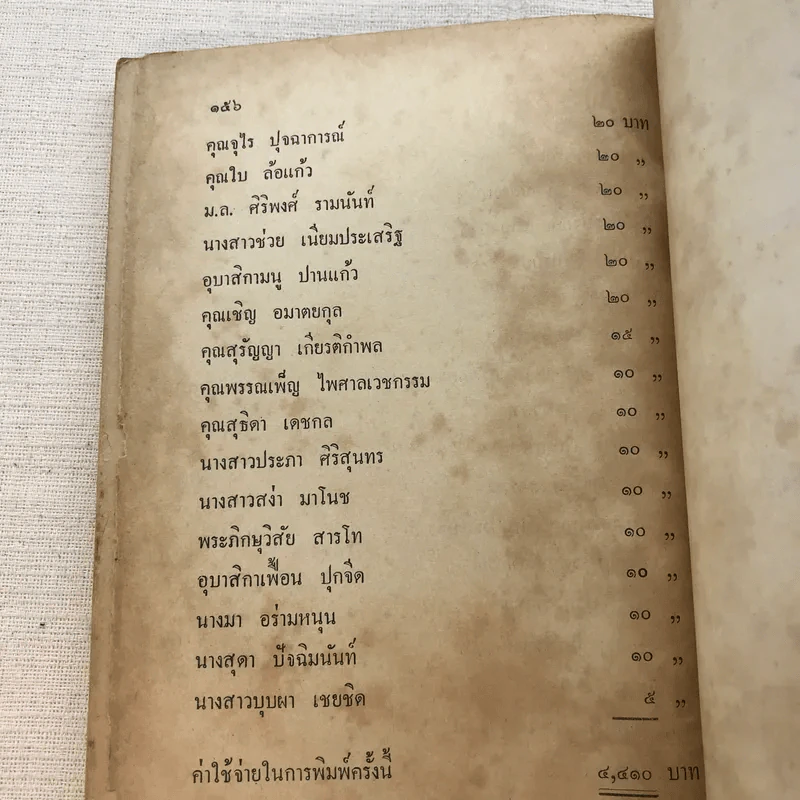 ๑๕๖
คุณจุไร ปุจฉาการณ์ ๒๐ บาท
คุณใบ ล้อแก้ว ๒๐ ,,
ม.ล. ศิริพงศ์ รามนันท์ ๒๐ ,,
นางสาวช่วย เนียมประเสริฐ ๒๐ ,,
อุบาสิกามนู ปานแก้ว ๒๐ ,,
คุณเชิญ อมาตยกุล ๒๐ ,,
คุณสุรัญญา เกียรติกำพล ๑๕ ,,
คุณพรรณเพ็ญ ไพศาลเวชกรรม ๑๐ ,,
คุณสุธิดา เดชกล ๑๐ ,,
นางสาวประภา ศิริสุนทร ๑๐ ,,
นางสาวสง่า มาโนช ๑๐ ,,
พระภิกษุวิสัย สารโท ๑๐ ,,
อุบาสิกาเพื้อน ปุกจีด ๑๐ ,,
นางมา อร่ามหนุน ๑๐ ,,
นางสุดา ปัจฉิมนันท์ ๑๐ ,,
นางสาวบุบผา เชยชิด ๕ ,,
ค่าใช้จ่ายในการพิมพ์ครั้งนี้ ๔,๔๑๐ บาท